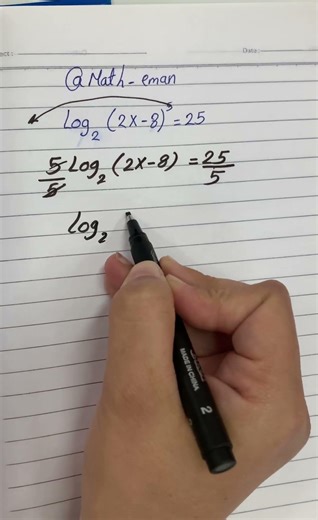 ect: Date:
@Math-eman
Log₂ (2x-8)⁵ = 25
5/5 Log₂ (2x-8) = 25/5
log₂
MADE IN CHINA
2